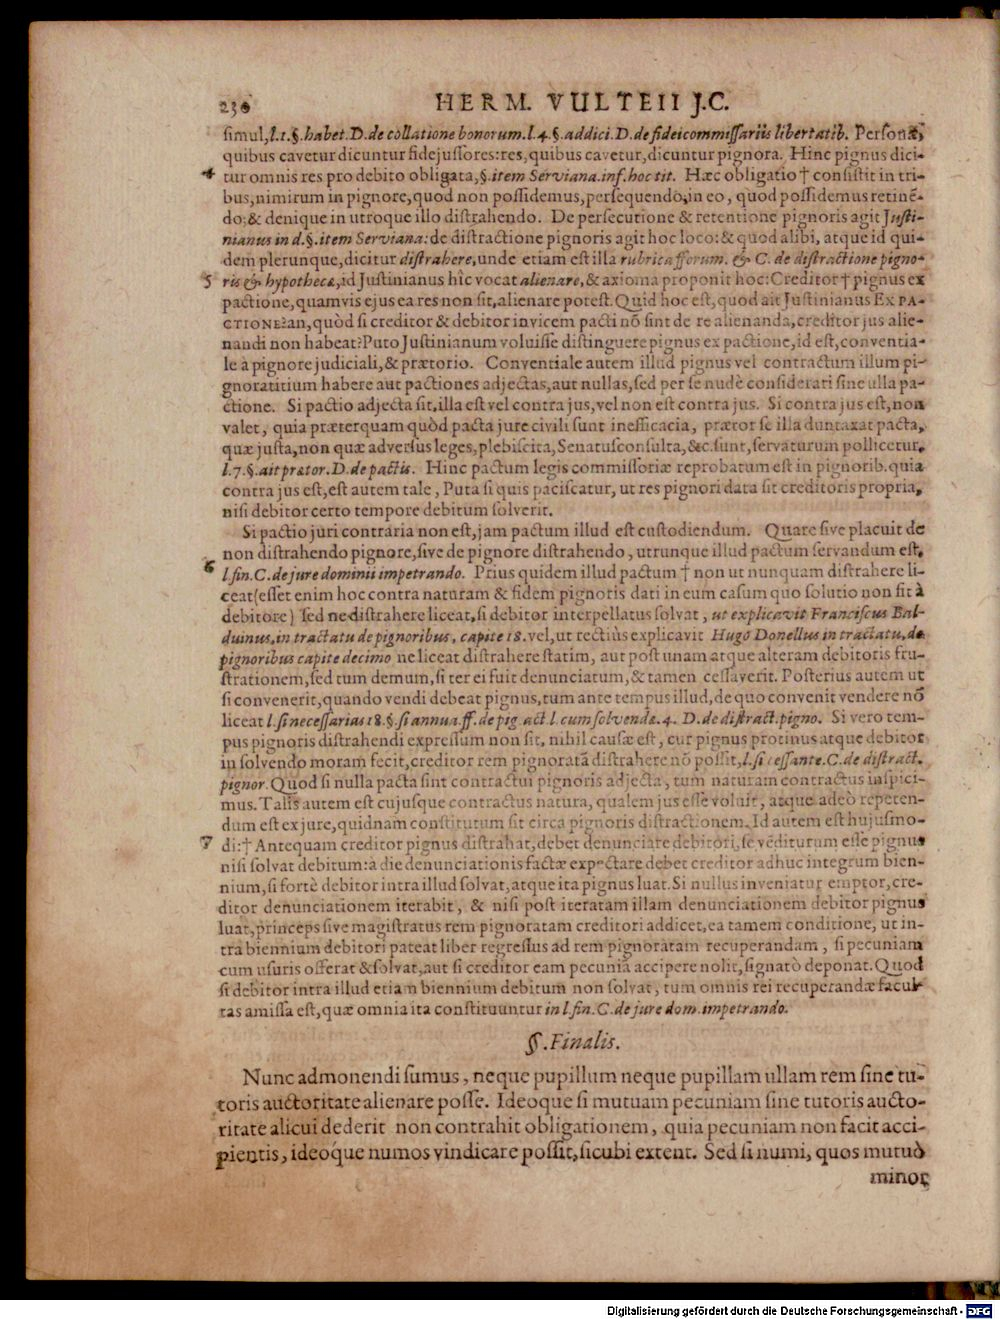 230 HERM. VULTEII J.C.
simul,l.1.§.habet.D.de collatione bonorum.l.4.§.addici.D.de fideicommissariis libertatib. Personæ,
quibus cavetur dicuntur fidejussores:res,quibus cavetur,dicuntur pignora. Hinc pignus dici-
4 tur omnis res pro debito obligata,§.item Serviana.inf.hoc tit. Hæc obligatio † consistit in tri-
bus,nimirum in pignore,quod non possidemus,persequendo;in eo, quod possidemus retinē-
do;& denique in utroque illo distrahendo. De persecutione & retentione pignoris agit Justi-
nianus in d.§.item Serviana:de distractione pignoris agit hoc loco:& quod alibi, atque id qui-
dem plerunque,dicitur distrahere,unde etiam est illa rubrica fforum. & C. de distractione pigno-
5 ris & hypothecæ,id Justinianus hîc vocat alienare,& axioma proponit hoc:Creditor † pignus ex
pactione,quamvis ejus ea res non sit,alienare potest. Quid hoc est,quod ait Justinianus EX PA-
CTIONE?an,quòd si creditor & debitor invicem pacti nō sint de re alienanda,creditor jus alie-
nandi non habeat?Puto Justinianum voluisse distinguere pignus ex pactione,id est,conventia-
le à pignore judiciali,& prætorio. Conventiale autem illud pignus vel contractum illum pi-
gnoratitium habere aut pactiones adjectas,aut nullas,sed per se nudè considerari sine ulla pa-
ctione. Si pactio adjecta sit,illa est vel contra jus,vel non est contra jus. Si contra jus est,non
valet, quia præterquam quòd pacta jure civili sunt inefficacia, prætor se illa duntaxat pacta,
quæ justa,non quæ adversus leges,plebiscita,Senatusconsulta,&c.sunt,servaturum pollicetur.
l.7.§.ait prætor.D.de pactis. Hinc pactum legis commissoriæ reprobatum est in pignorib.quia
contra jus est,est autem tale, Puta si quis paciscatur, ut res pignori data sit creditoris propria,
nisi debitor certo tempore debitum solverit.
Si pactio juri contraria non est,jam pactum illud est custodiendum. Quare sive placuit de
non distrahendo pignore,sive de pignore distrahendo, utrunque illud pactum servandum est.
6 l.fin.C.de jure dominii impetrando. Prius quidem illud pactum † non ut nunquam distrahere li-
ceat(esset enim hoc contra naturam & fidem pignoris dati in eum casum quo solutio non fit à
debitore) sed ne distrahere liceat,si debitor interpellatus solvat, ut explicavit Franciscus Bal-
duinus,in tractatu de pignoribus, capite 18. vel,ut rectiùs explicavit Hugo Donellus in tractatu,de
pignoribus capite decimo ne liceat distrahere statim, aut post unam atque alteram debitoris fru-
strationem,sed tum demum,si ter ei fuit denunciatum,& tamen cessaverit. Posterius autem ut
si convenerit,quando vendi debeat pignus,tum ante tempus illud,de quo convenit vendere nō
liceat l.si necessarias 18.§.si annua.ff.de pig act l.cum solvendæ.4. D.de distract.pigno. Si vero tem-
pus pignoris distrahendi expressum non sit, nihil causæ est, cur pignus protinus atque debitor
in solvendo moram fecit,creditor rem pignoratā distrahere nō possit,l.si cessante.C.de distract.
pignor. Quod si nulla pacta sint contractui pignoris adjecta, tum naturam contractus inspici-
mus. Talis autem est cujusque contractus natura, qualem jus esse voluit, atque adeò repeten-
dum est ex jure,quidnam constitutum sit circa pignoris distractionem. Id autem est hujusmo-
7 di:† Antequam creditor pignus distrahat,debet denunciare debitori,se vēditurum esse pignus
nisi solvat debitum:à die denunciationis factæ expectare debet creditor adhuc integrum bien-
nium,si fortè debitor intra illud solvat,atque ita pignus luat.Si nullus inveniatur emptor,cre-
ditor denunciationem iterabit, & nisi post iteratam illam denunciationem debitor pignus
luat,princeps sive magistratus rem pignoratam creditori addicet,ea tamen conditione, ut in-
tra biennium debitori pateat liber regressus ad rem pignoratam recuperandam, si pecuniam
cum usuris offerat & solvat,aut si creditor eam pecuniā accipere nolit,signatò deponat.Quod
si debitor intra illud etiam biennium debitum non solvat, tum omnis rei recuperandæ facul-
tas amissa est,quæ omnia ita constituuntur in l.fin.C.de jure dom.impetrando.
§.Finalis.
Nunc admonendi sumus, neque pupillum neque pupillam ullam rem sine tu-
toris auctoritate alienare posse. Ideoque si mutuam pecuniam sine tutoris aucto-
ritate alicui dederit non contrahit obligationem, quia pecuniam non facit acci-
pientis, ideóque numos vindicare possit,sicubi extent. Sed si numi, quos mutuò
minor
Digitalisierung gefördert durch die Deutsche Forschungsgemeinschaft - DFG